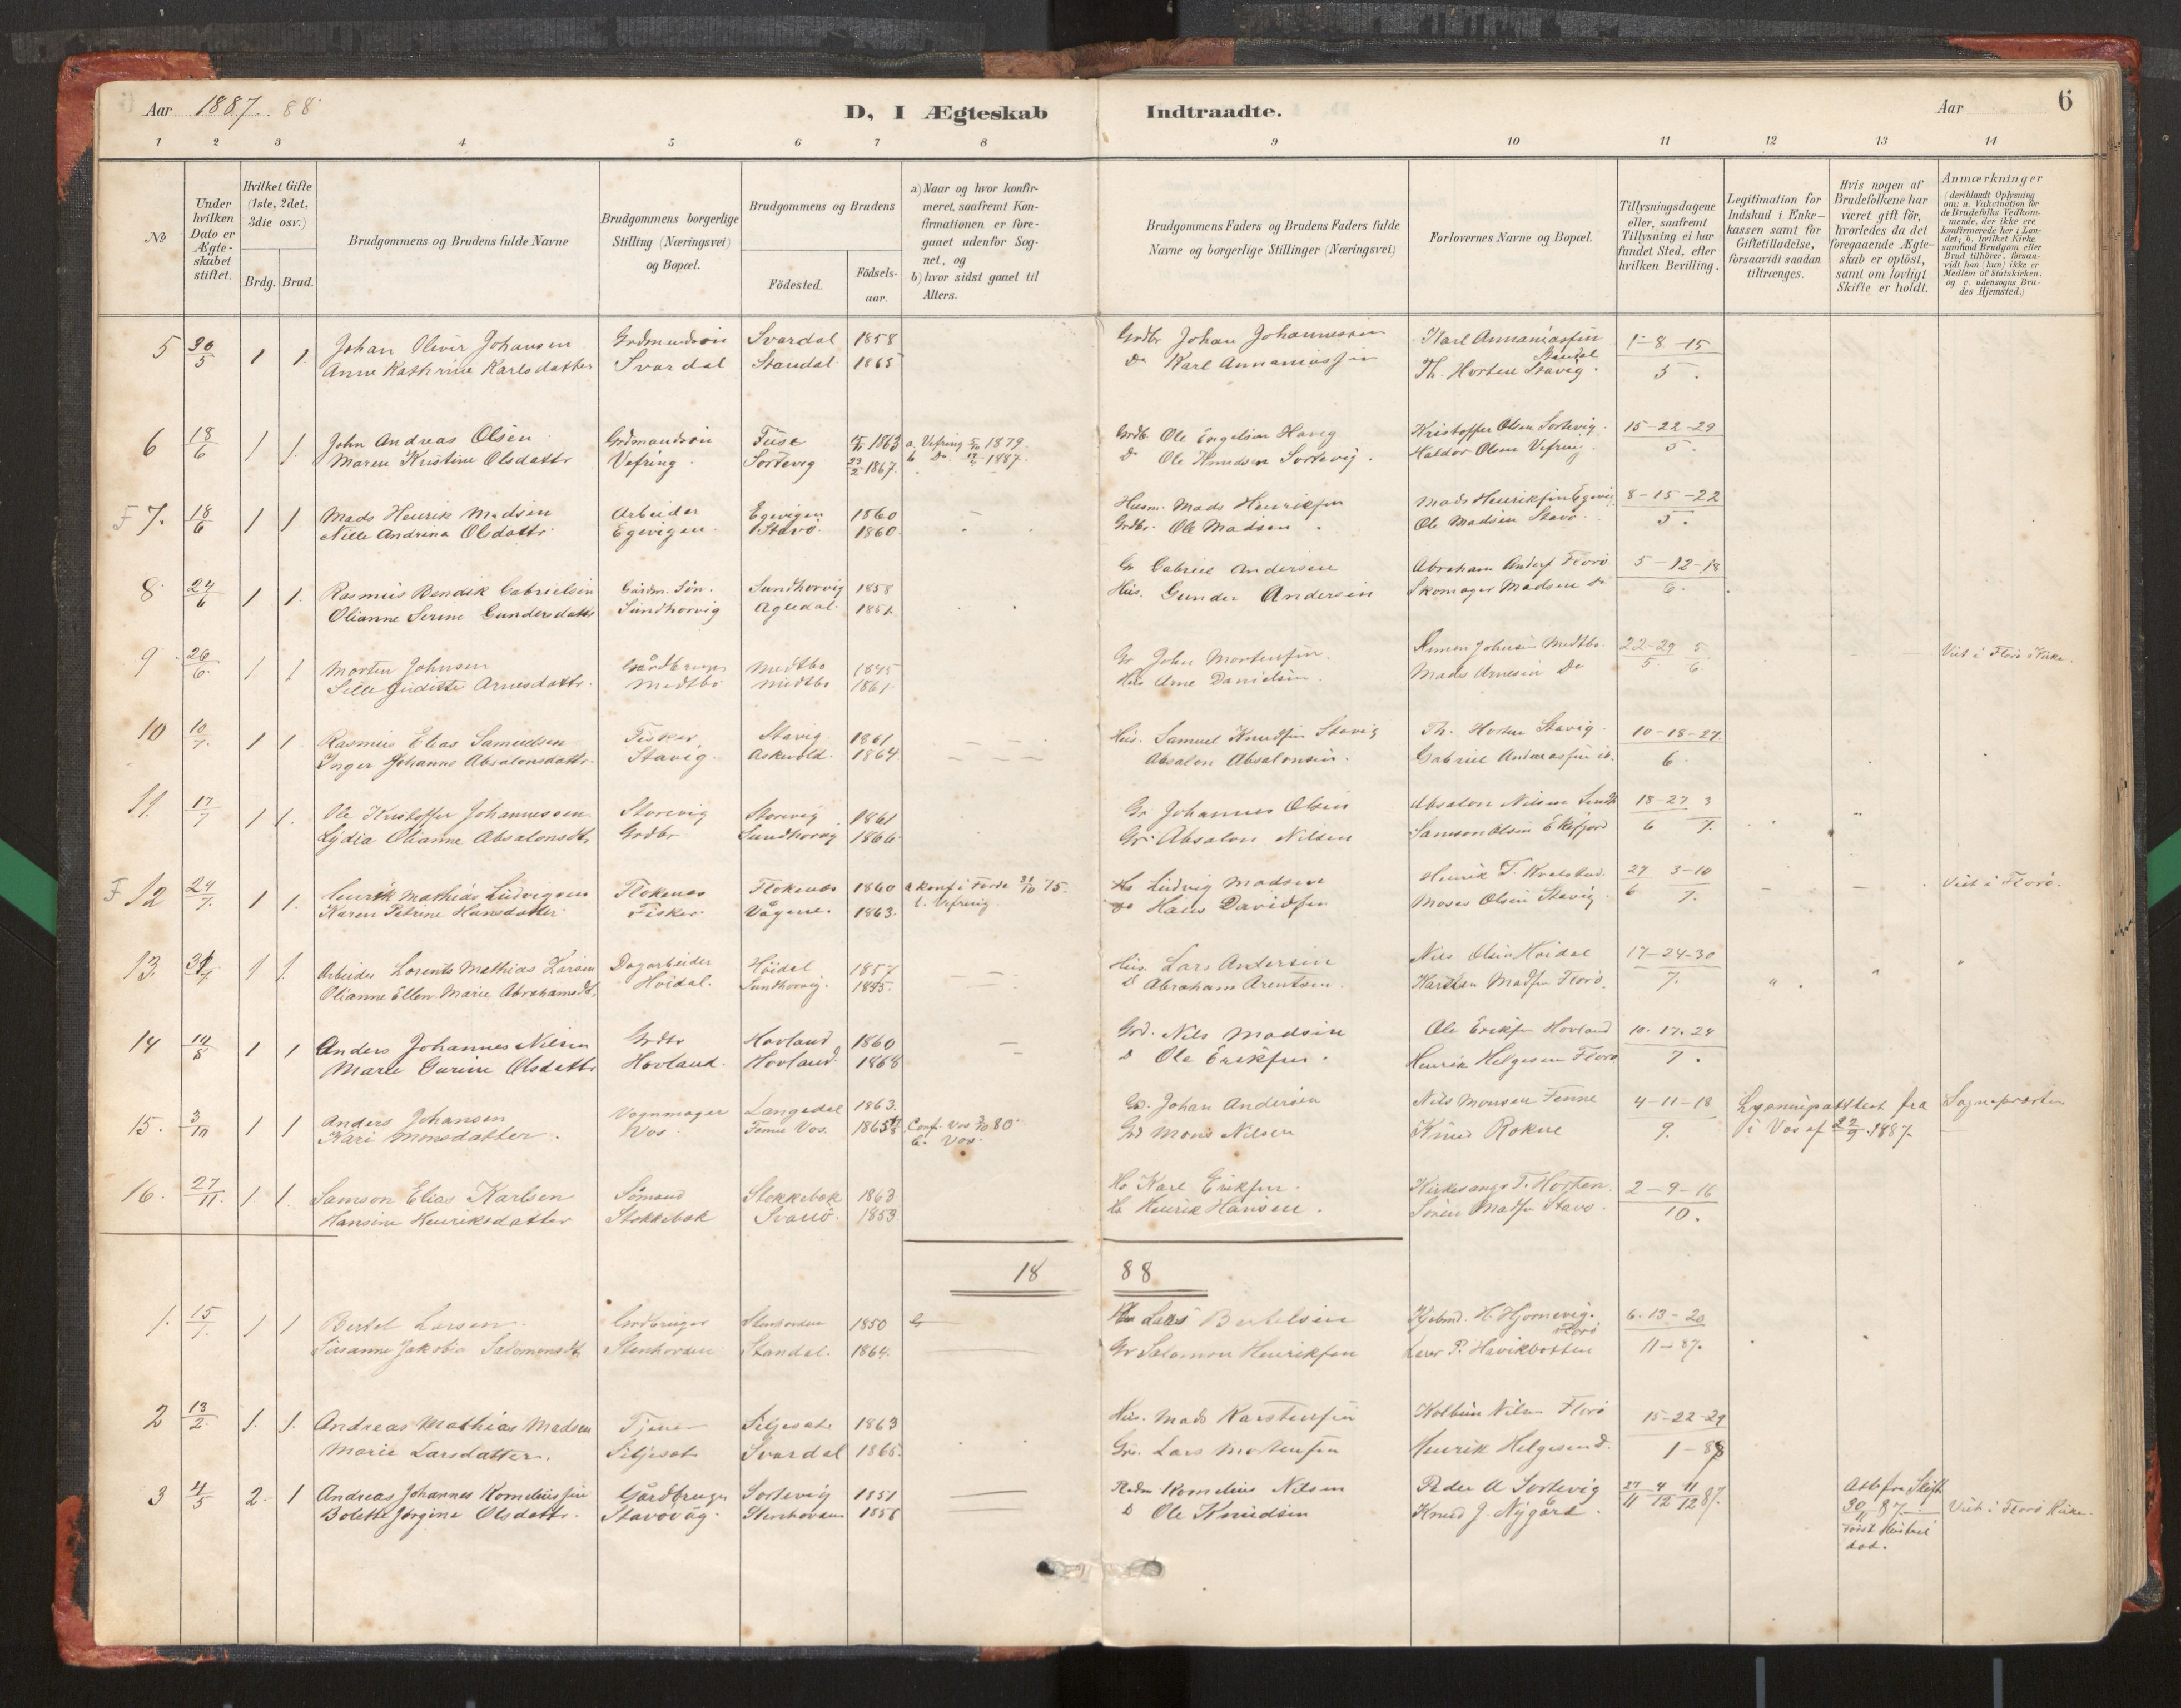 Aar 1887. 88 D, I Ægteskab Indtraadte. Aar 6
1 2 3 4 5 6 7 8 9 10 11 12 13 14
№
Under hvilken Dato er Ægteskabet stiftet.
Hvilket Gifte (1ste, 2det, 3die osv.)
Brdg. Brud.
Brudgommens og Brudens fulde Navne
Brudgommens borgerlige Stilling (Næringsvei) og Bopæl.
Brudgommens og Brudens
Födested. Födselsaar.
a) Naar og hvor konfirmeret, saafremt Konfirmationen er foregaaet udenfor Sognet, og
b) hvor sidst gaaet til Alters.
Brudgommens Faders og Brudens Faders fulde Navne og borgerlige Stillinger (Næringsvei)
Forlovernes Navne og Bopæl.
Tillysningsdagene eller, saafremt Tillysning ei har fundet Sted, efter hvilken Bevilling.
Legitimation for Indskud i Enkekassen samt for Giftetilladelse, forsaavidt saadan tiltrænges.
Hvis nogen af Brudefolkene har været gift för, hvorledes da det foregaaende Ægteskab er oplöst, samt om lovligt Skifte er holdt.
Anmærkninger
(deriblandt Oplysning om: a. Vakcination for de Brudefolks Vedkommende, der ikke ere konfirmerede her i Landet, b. hvilket Kirkesamfund Brudgom eller Brud tilhörer, forsaavidt han (hun) ikke er Medlem af Statskirken, og c. udensogns Brudes Hjemsted.)
5 30/5 1 1. Johan Oliver Johansen Grdmandsön Svardal 1858 Grdbr Johan Johannessen Karl Annaniassen Standal 1-8-15
Anne Kathrine Karlsdatter Svardal Standal 1865 Do Karl Annaniassen Th. Horten Stavig. 5.
6 18/6 1 1. John Andreas Olsen Grdmandsön Fuse 1863 a. Vefring 1879. Grdb. Ole Engelsen Haveg Kristoffer Olsen Sortevig. 15-22-29
Maren Kristine Olsdattr Vefring. Sortevig 23/2 1867. b Do. 1887. D Ole Knudsen Sortevig. Haldor Olsen Vefring 5.
F 7. 18/6 1 1 Mads Henrik Madsen Arbeider Egevigen 1860 Husm. Mads Henriksen Mads Henriksen Egevig 8-15-22
Nille Andrina Olsdattr. Egevigen. Stavö. 1860. Grdbr. Ole Madsen. Ole Madsen Stavö. 5.
8. 24/6 1 1. Rasmus Bendik Gabrielsen Gårdm. Sön. Sundhorvig 1858 Gr Gabriel Andersen Abraham Anders Florö 5-12-18
Olianne Serine Gundersdattr Sundhorvig Agledal. 1851. Hus. Gunder Andersen Skomager Madsen do 6.
9 26/6. 1 1 Morten Johnsen Gårdbruger Medtbö 1845 Gr John Mortensen. Simen Johnsen Medtbö. 22-29/5 5/6 Viet i Florö Kirke.
Sille Juditte Arnesdattr. Medtbö Medtbö 1861. Hus Arne Danielsen. Mads Arnesen Do
10 10/7. 1 1 Rasmus Elias Samuelsen Fisker Stavig. 1861 Hus. Samuel Knudsen Stavig Th. Horten Stavig. 10-18-27.
Inger Johanne Absalonsdattr. Stavig. Askevold. 1864. Absalon Absalonsen. Gabriel Andreassen ib. 6.
11. 17/7 1 1. Ole Kristoffer Johannessen Storevig Storevig 1861 Gr Johannes Olsen Absalon Nilsen Sundh 18-27/6 3/7.
Lydia Olianne Absalonsdtr Grdbr Sundhorvig 1866 Gr. Absalon Nilsen Samson Olsen Eikefjord
F 12 24/7. 1 1. Henrik Mathias Ludvigsen Flokenes Flokenes 1860 a konf i Förde 31/10 75. Hs Ludvig Madsen Henrik T. Kvalstad 27/6 3-10/7. Viet i Florö.
Karen Petrine Hansdatter Fisker. Vågene. 1863. b. Vefring Do Hans Davidsen Moses Olsen Stavig
13. 31/7 1 1. Arbeider Lorents Mathias Larsen Dagarbeider Höidal 1857 Hus. Lars Andersen Nils Olsen Höidal 17-24-30
Olianne Ellen Marie Abrahamsdt. Höidal. Sundhorvig. 1845. D Abraham Arentsen. Karsten Madsen Florö. 7.
14 14/8 1 1 Anders Johannes Nilsen Grdbr Hovland 1860 Grd. Nils Madsen Ole Eriksen Hovland 10. 17. 24
Marie Gurine Olsdattr Hovland. Hovland. 1868 D Ole Eriksen. Henrik Helgesen Florö 7.
15. 3/10 1 1 Anders Johansen Vognmager Langedal 1863. Conf. Vos 80. Gr. Johan Andersen Nils Monsen Fenne 4-11-18 Lysningsattest fra Sognepresten
Kari Monsdatter. Vos. Fenne Vos. 1865 b. Vos. Grd Mons Nilsen Knud Rokne 9. i Vos af 22/9. 1887.
16. 27/11. 1. 1. Samson Elias Karlsen Sömand Stokkebek 1863 Hs Karl Eriksen. Kirkesanger T. Horten. 2-9-16
Hansine Henriksdatter Stokkebek Svanö 1853 Hs Henrik Hansen. Sören Madsen Stavö. 10.
18 88
1. 15/1. 1 1 Bertel Larsen. Gårdbruger Stenhovden 1850 Hus Lars Bertelsen Kjöbmd. H. Hjornevig. Florö 6. 13-20
Susanne Jakobia Salomonsdt. Stenhovden Standal. 1864. Gr Salomon Henriksen P. Havikbotten 11-87.
2 13/2. 1. 1. Andreas Mathias Madsen Tjener Siljesöt 1863 Hus. Mads Karstensen Kolbein Nilsen Florö 15-22-29
Marie Larsdatter. Siljesöt Svardal 1865. Grd. Lars Mortensen Henrik Helgesen d. 1-88
3 4/5 2. 1 Andreas Johannes Korneliussen Gårdbruger Sortevig 1851 Kornelius Nilsen Peder A Sortevig 27/11 4/12 11/12 87. Att. fra Skift 30/11 87.
Bolette Jörgine Olsdattr. Stavövåg. Stenhovden 1856 D Ole Knudsen Knud J. Nygård. Först Hustru död. Viet i Florö Kirke.